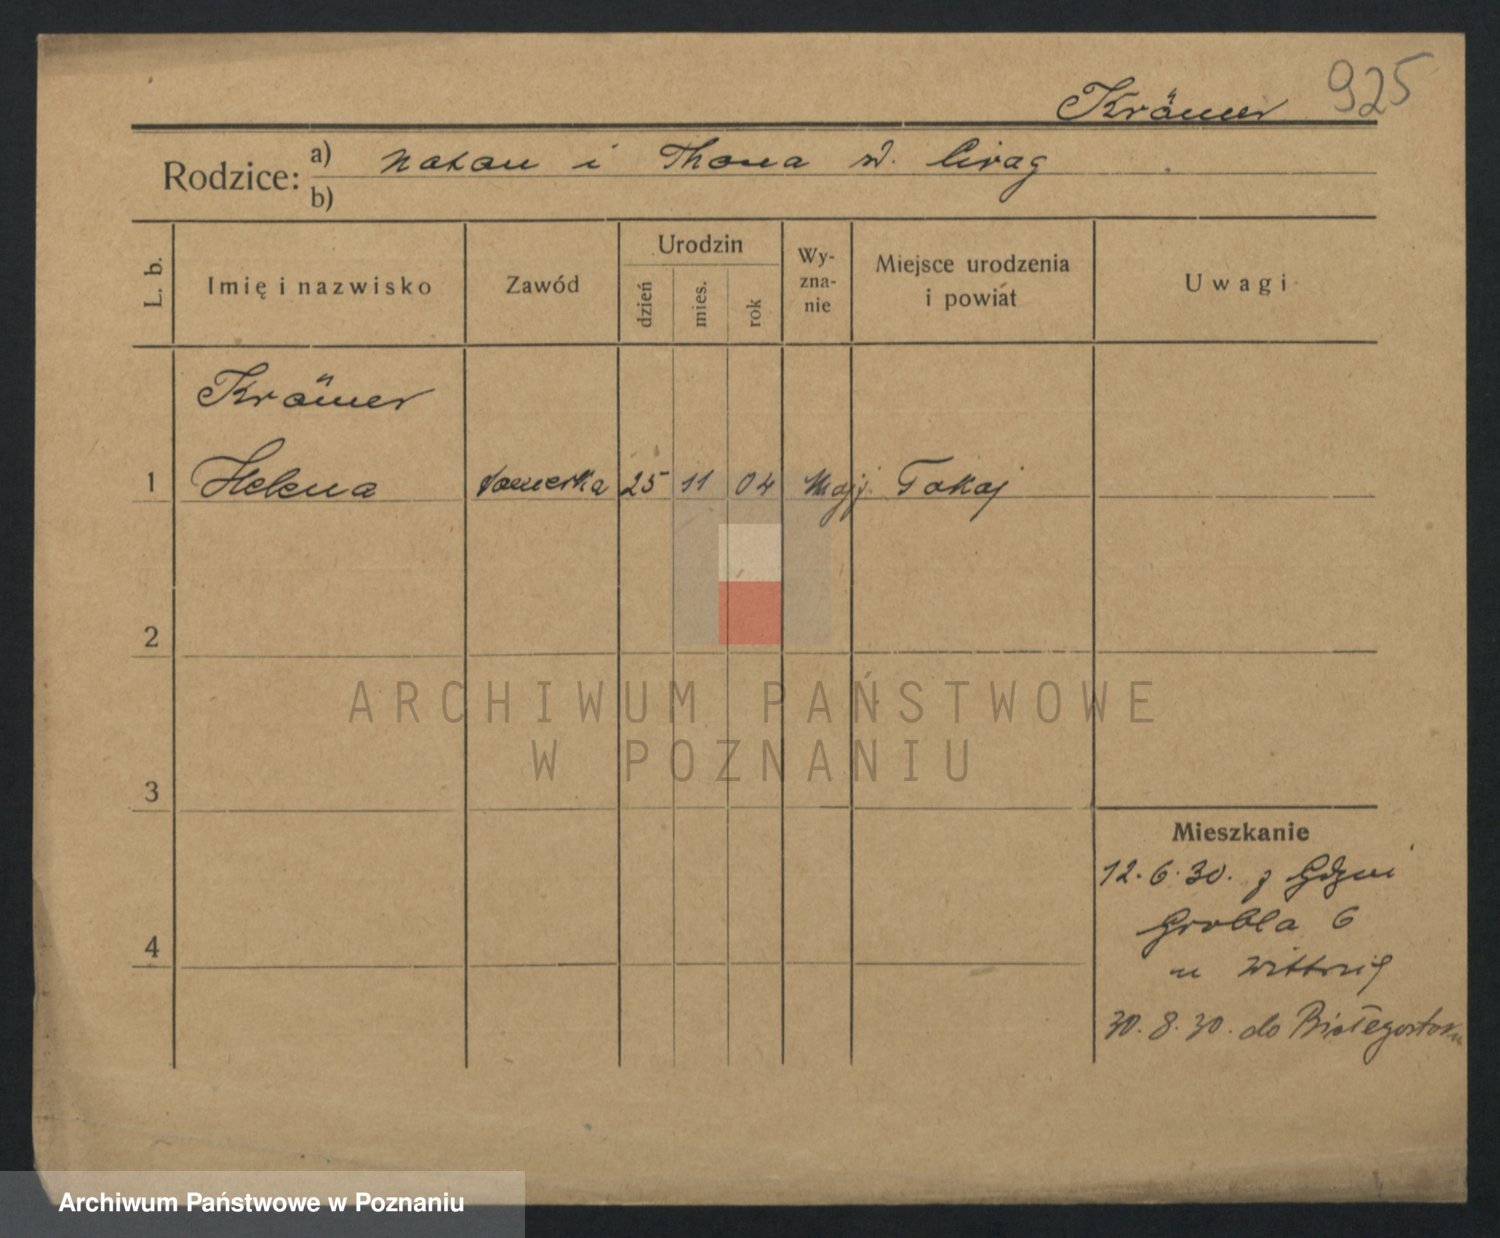 925
Krämer
Rodzice: a) Natan i Thona z d. Cirag
b)
L. b.
Imię i nazwisko
Zawód
Urodzin
dzień
mies.
rok
Wy-
zna-
nie
Miejsce urodzenia
i powiat
Uwagi
Krämer
1 Helena 25 11 04 Tokaj
2
3
4
Mieszkanie
12.6.30. z Gdyni
Grobla 6
u
30.8.30. do Białegostoku
ARCHIWUM PAŃSTWOWE
W POZNANIU
Archiwum Państwowe w Poznaniu